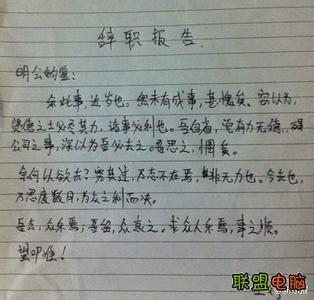 辞职报告
明公钧鉴:
余此事,近岁也。然未有成事,甚愧矣。窃以为,
贤德之士必尽其力,诸事必利也。吾自省,觉有力无德,碍
公司之事,深以为吾必去之。吾思之,惘矣。
余何以欲去?究其过,乃志不在焉,非无力也。今去也,
乃思度数日,为众之利而决。
吾去,众乐焉;吾留,众哀之。求众人乐焉,事之顺。
望叩准!
联盟电脑